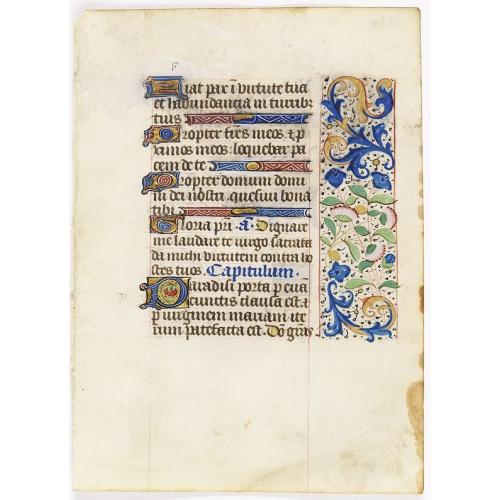 F
Fiat pax i virtute tua
et habundancia in turrib
tuis
Propter fres meos et p
ximos meos: loquebar pa
cem de te
Propter domum domi
ni dei nostri quesiui bona
tibi
Gloria pri. a. Dignare
me laudare te uirgo sacrata
da michi virtutem contra ho
stes tuos. Capitulum.
Paradisi porta p eua
cunctis clausa est. et
p uirginem mariam ite
rum patefacta est. Do gras